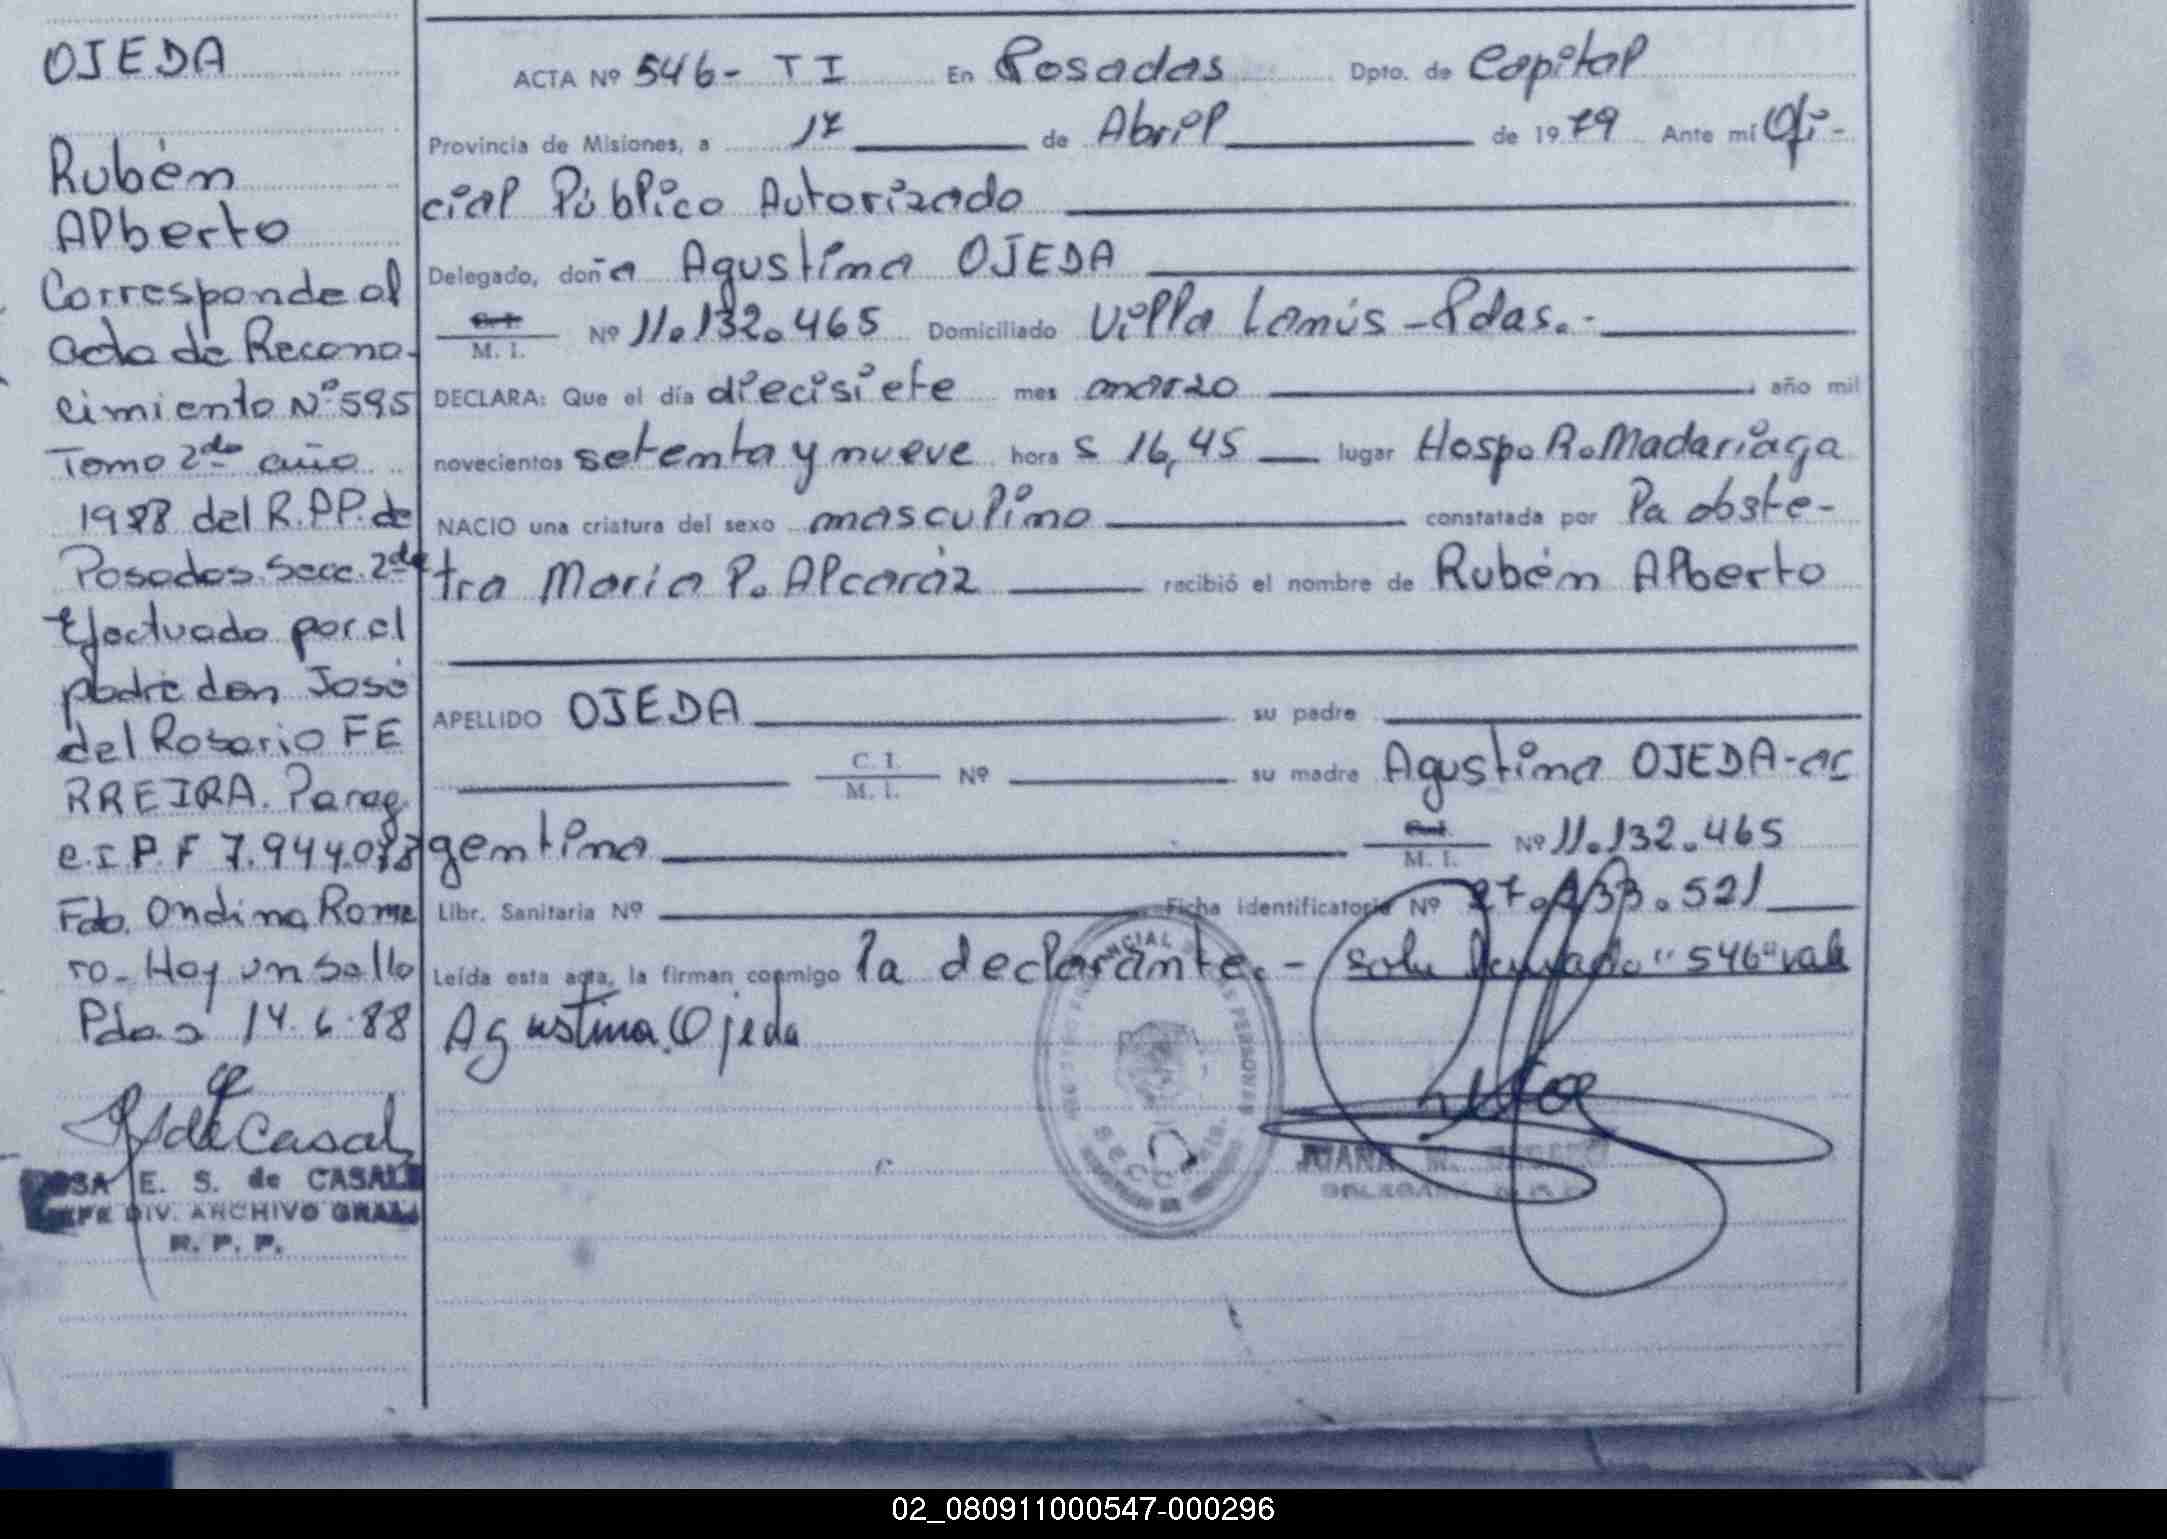 OJEDA
Rubén
Alberto
Corresponde al
acta de Recono-
cimiento Nº 595
Tomo 2do año
1988 del R.P.P. de
Posadas Secc. 2da
Efectuado por el
padre don José
del Rosario FE
RREIRA. Parag.
C.I.P.F 7.944.078
Fdo. Ondina Rome
ro- Hay un sello
Pdas 14.6.88
R S de Casals
ROSA E. S. de CASALS
JEFE DIV. ARCHIVO GRAL
R. P. P.
ACTA Nº 546- T I En Posadas Dpto. de Capital
Provincia de Misiones, a 17 de Abril de 1979 Ante mí Ofi-
cial Público Autorizado
Delegado, doña Agustina OJEDA
C.I. M. I. Nº 11.132.465 Domiciliado Villa Lanús - Pdas.-
DECLARA: Que el día diecisiete mes marzo año mil
novecientos setenta y nueve hora s 16,45 lugar Hosp. R. Madariaga
NACIO una criatura del sexo masculino constatada por la obste-
tra María P. Alcaráz recibió el nombre de Rubén Alberto
APELLIDO OJEDA su padre
C. I. M. I. Nº su madre Agustina OJEDA-ar
gentina C.I. M. I. Nº 11.132.465
Libr. Sanitaria Nº Ficha identificatoria Nº 27.233.521
Leída esta acta, la firman conmigo la declarante.- "546" vale
Agustina Ojeda
JUANA
02_080911000547-000296